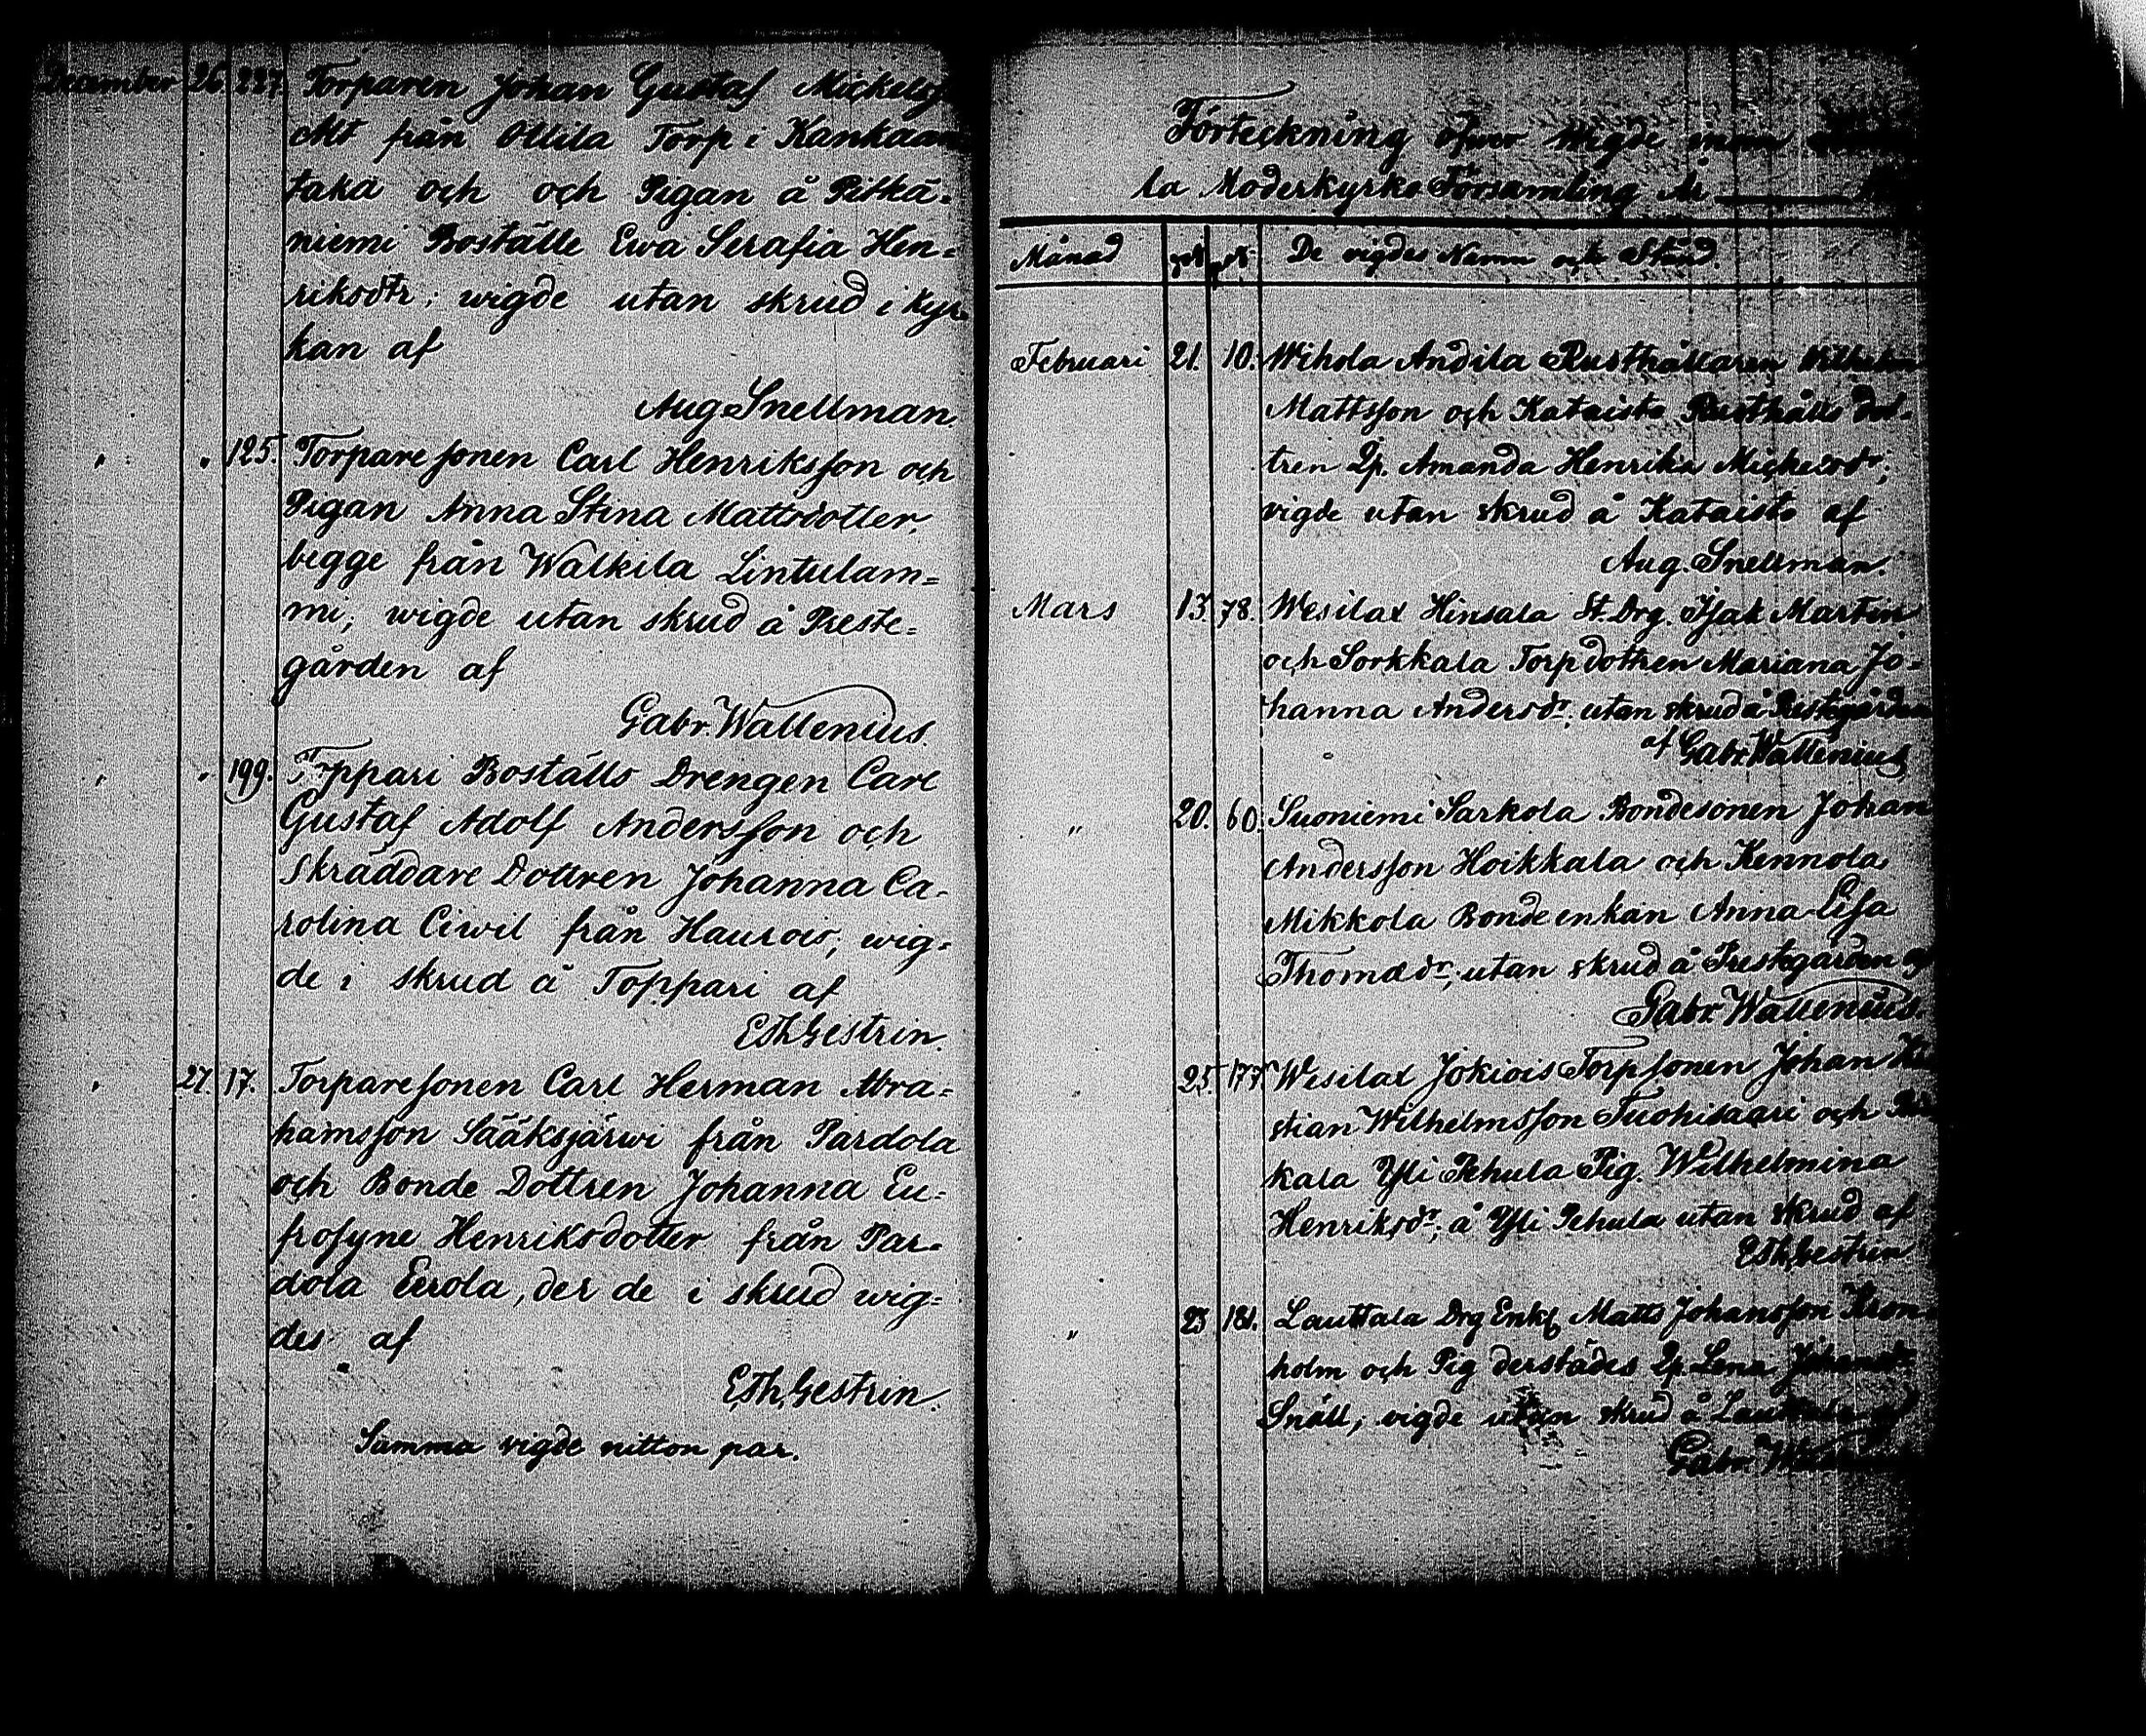 December 26. 227. Torparen Johan Gustaf Mickelss
Alt från Ollila Torp i Kankaan
taka och och Pigan å Pitkä-
niemi Boställe Ewa Serafia Hen-
riksdtr; wigde utan skrud i Kyr-
kan af
Aug Snellman.
" " 125. Torparesonen Carl Henriksson och
Pigan Anna Stina Mattsdotter,
begge från Walkila Lintulam-
mi, wigde utan skrud å Preste-
gården af
Gabr. Wallenius.
" " 199. Toppari Boställs Drengen Carl
Gustaf Adolf Andersson och
Skräddare Dottren Johanna Ca-
rolina Ciwil från Haurois; wig-
de i skrud å Toppari af
E Th Gestrin.
" 27. 17. Torparesonen Carl Herman Abra-
hamsson Sääksjärwi från Pardola
och Bonde Dottren Johanna Eu-
frosyne Henriksdotter från Par-
dola Eerola, der de i skrud wig-
des af
E Th Gestrin.
Samma vigde nitton par.
Förteckning öfver Wigde inom
la Moderkyrko Församling År
Månad De vigdes Namn och Stånd.
Februari 21. 10. Wihola Andila Rusthållaren Wilhelm
Mattsson och Kataisto Rusthålls dot-
tren Jp. Amanda Henrika Mickelsdr;
vigde utan skrud å Kataisto af
Aug. Snellman.
Mars 13. 78. Wesilax Hinsala St. Drg. Isak Martin
och Sorkkala Torpdottren Mariana Jo-
hanna Andersdr; utan skrud å Prestegården
af Gabr. Wallenius
" 20. 60. Suoniemi Sarkola Bondesonen Johan
Andersson Hoikkala och Kennola
Mikkola Bonde enkan Anna Lisa
Thomædr; utan skrud å Prestegården af
Gabr. Wallenius.
" 25. 177. Wesilax Jokiois Torpsonen Johan
stian Wilhelmsson Tuohisaari och
kala Yli Pehula Pig. Wilhelmina
Henriksdr; å Yli Pehula utan skrud af
E Th Gestrin
" 25 181. Lauttala Drg Enkl Matts Johansson Kron
holm och Pig derstädes Jp. Lena Johansdr
Snäll; vigde utan skrud å Lauttala af
Gabr. Wallenius